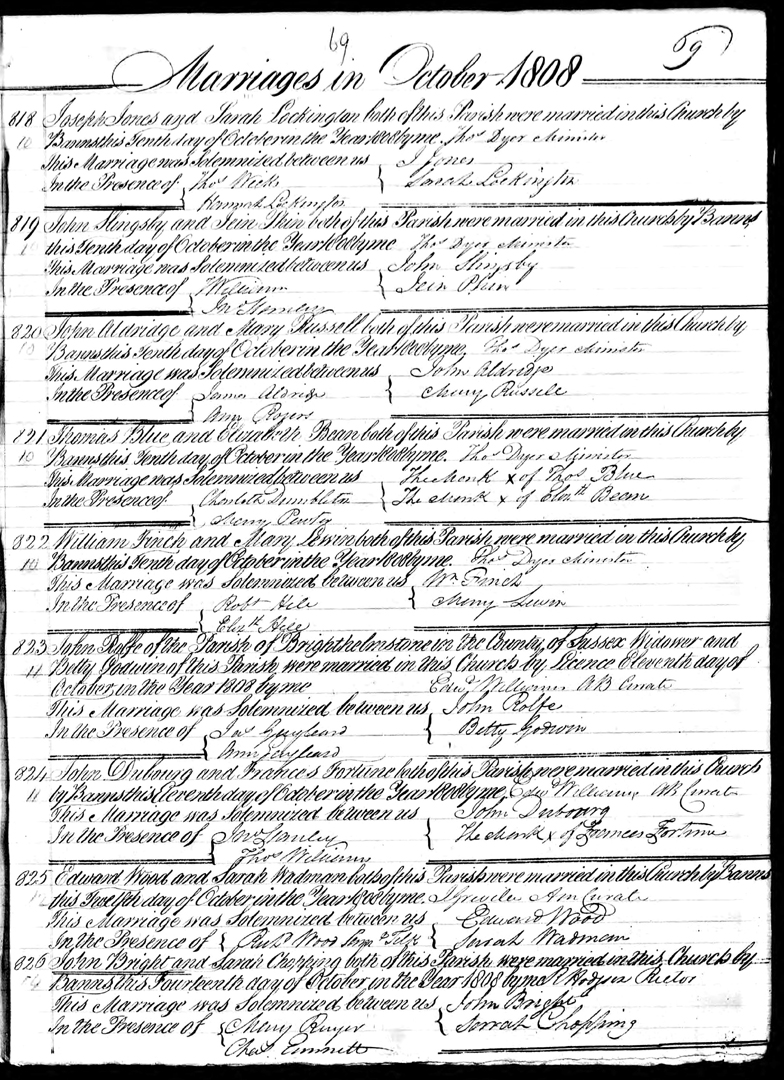 69
69
Marriages in October 1808
818 Joseph Jones and Sarah Lockington both of this Parish were married in this Church by
10 Banns this Tenth day of October in the Year 1808 by me Thos Dyer Minister
This Marriage was Solemnized between us { J Jones
In the Presence of { Thos Weeks Sarah Lockington
Hannah Lockington
819 John Slingsby and Jein Plin both of this Parish were married in this Church by Banns
this Tenth day of October in the Year 1808 by me Thos Dyer Minister
This Marriage was Solemnized between us { John Slingsby
In the Presence of { William Jein Plin
Jno Stanley
820 John Aldridge and Mary Russell both of this Parish were married in this Church by
10 Banns this Tenth day of October in the Year 1808 by me Thos Dyer Minister
This Marriage was Solemnized between us { John Aldridge
In the Presence of { James Aldridge Mary Russell
Ann Rogers
821 Thomas Blue and Elizabeth Bean both of this Parish were married in this Church by
10 Banns this Tenth day of October in the Year 1808 by me Thos Dyer Minister
This Marriage was Solemnized between us { The Mark x of Thos Blue
In the Presence of { Charlotte Dumbleton The Mark x of Elizth Bean
Mary
822 William Finch and Mary Lewin both of this Parish were married in this Church by
10 Banns this Tenth day of October in the Year 1808 by me Thos Dyer Minister
This Marriage was Solemnized between us { Wm Finch
In the Presence of { Robt Hile Mary Lewin
Elizth Hile
823 John Rolfe of the Parish of Brighthelmstone in the County of Sussex Widower and
11 Betty Godwin of this Parish were married in this Church by Licence Eleventh day of
October in the Year 1808 by me Edwd Williams AB Curate
This Marriage was Solemnized between us { John Rolfe
In the Presence of { Jas Gayleard Betty Godwin
Ann Gayleard
824 John Dubourg and Frances Fortune both of this Parish were married in this Church
11 by Banns this Eleventh day of October in the Year 1808 by me Edwd Williams AB Curate
This Marriage was Solemnized between us { John Dubourg
In the Presence of { Jno Stanley The Mark x of Frances Fortune
Thos Williams
825 Edward Wood and Sarah Wadman both of this Parish were married in this Church by Banns
this Twelfth day of October in the Year 1808 by me J Greville Curate
This Marriage was Solemnized between us { Edward Wood
In the Presence of { Richd Wood Sarah Wadman
826 John Bright and Sarah Chopping both of this Parish were married in this Church by
Banns this Fourteenth day of October in the Year 1808 by me R Hodgson Rector
This Marriage was Solemnized between us { John Bright
In the Presence of { Mary Sarah Chopping
Chas Emmett